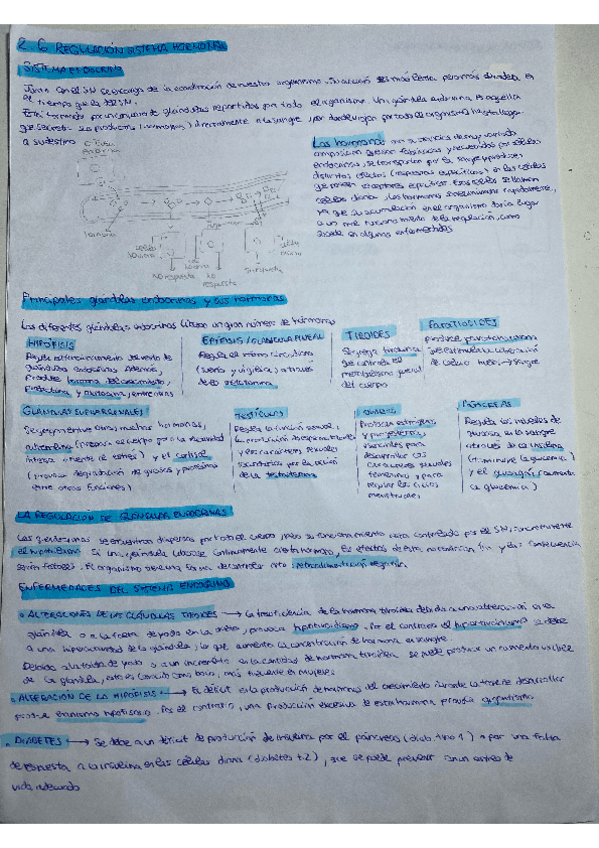 2.6 REGULACIÓN SISTEMA HORMONAL
SISTEMA ENDOCRINO
Junto con el SN se encarga de la coordinación de nuestro organismo. Su acción es más lenta pero más duradera en
el tiempo que la del SN.
Está formado por un conjunto glándulas repartidas por todo el organismo. Una glándula endocrina es aquella
que secreta sus productos (hormonas) directamente a la sangre y son por todo el organismo hasta llegar
a su destino
Las hormonas son sustancias de muy variada
composición que son fabricadas y secretadas por células
endocrinas, se transportan por la sangre y producen
distintos efectos (respuestas específicas) en las células
que poseen receptores específicos. Esas células se llaman
células diana. Las hormonas rápidamente,
ya que su acumulación en el organismo daría lugar
a un mal funcionamiento de la regulación, como
sucede en algunas enfermedades
célula
endocrina
hormona
célula
diana
no respuesta
no
respuesta
respuesta
Principales glándulas endocrinas y sus hormonas
Las diferentes glándulas endocrinas liberan un gran número de hormonas
HIPÓFISIS
Regula el funcionamiento del resto de
glándulas endocrinas. Además,
produce hormona del crecimiento,
prolactina y oxitocina, entre otras
EPÍFISIS / GLÁNDULA PINEAL
Regula el ritmo circadiano
(sueño y vigilia) a través
de la melatonina.
TIROIDES
Segrega tiroxina
que controla el
metabolismo general
del cuerpo
PARATIROIDES
produce parathormona
que estimula la liberación
de calcio hueso → sangre
GLÁNDULAS SUPRARRENALES
Segregan entre otras muchas hormonas,
adrenalina (prepara el cuerpo para la necesidad
intensa o frente al estrés) y el cortisol
(provoca degradación de grasas y proteínas
entre otras funciones)
TESTÍCULOS
Regula la función sexual,
la producción de espermatozoides
y los caracteres sexuales
secundarios por la acción
de la testosterona
OVARIOS
Producen estrógenos
y progesterona,
esenciales para
desarrollar los
caracteres sexuales
femeninos y para
regular los ciclos
menstruales.
PÁNCREAS
Regula los niveles de
glucosa en la sangre
a través de la insulina
(disminuye la glucemia)
y el glucagón (aumenta
la glucemia)
LA REGULACIÓN DE GLÁNDULAS ENDOCRINAS
Las g. endocrinas se encuentran dispersas por todo el cuerpo, pero su funcionamiento está controlado por el SN, concretamente
el hipotálamo. Si una glándula libérase continuamente cierta hormona, los efectos de ésta no tendrían fin y las consecuencias
serían fatales. El organismo tiene una forma de controlar esto: retroalimentación negativa.
ENFERMEDADES DEL SISTEMA ENDOCRINO
• ALTERACIONES DE LAS GLÁNDULAS TIROIDES → La insuficiencia de la hormona tiroidea debida a una alteración en la
glándula o a la falta de yodo en la dieta, provoca hipotiroidismo. Por el contrario el hipertiroidismo se debe
a una hiperactividad de la glándula, lo que aumenta la concentración de hormona en sangre.
Debido a la falta de yodo o a un incremento en la cantidad de hormona tiroidea se puede producir un aumento visible
de la glándula, esto es conocido como bocio, más frecuente en mujeres
• ALTERACIÓN DE LA HIPÓFISIS → El déficit en la producción de hormonas del crecimiento durante la fase de desarrollo
produce enanismo hipofisario. Por el contrario, una producción excesiva de esta hormona provoca gigantismo
• DIABETES → Se debe a un déficit de producción de insulina por el páncreas (diab. tipo 1) o por una falta
de respuesta a la insulina en las células diana (diabetes t.2), que se puede prevenir con un estilo de
vida adecuado